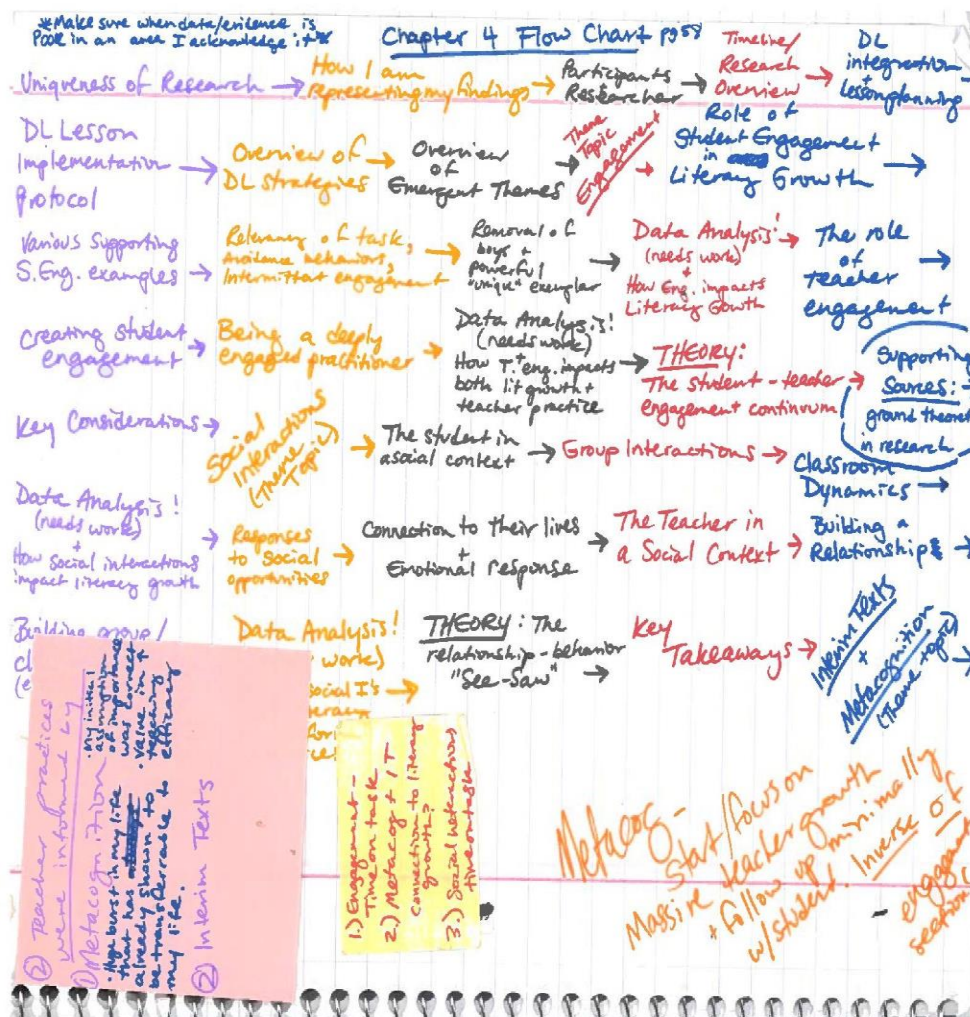 *Make sure when data/evidence is
POOR in an area I acknowledge it*
Chapter 4 Flow Chart pg 58
Uniqueness of Research →
How I am
representing my findings →
Participants
Researcher →
Timeline/
Research
Overview →
DL
integration
+
lesson planning
DL Lesson
Implementation
Protocol →
Overview of
DL strategies →
Overview
of
Emergent Themes →
Theme
Topic
Engagement →
Role of
Student Engagement
in
Literacy Growth →
Various Supporting
S.Eng. examples →
Relevancy of task,
Avoidance behaviors,
Intermittant engagement →
Removal of
boys +
powerful
"unique" exemplar →
Data Analysis!
(needs work)
+
How Eng. impacts
Literacy Gowth →
The role
of
teacher
engagement →
Creating student
engagement →
Being a deeply
engaged practitioner →
Data Analysis!
(needs work)
+
How T. eng. impacts
both lit growth +
teacher practice →
THEORY:
The student-teacher
engagement continuum →
Supporting
Sources: →
ground theories
in research
Key Considerations →
Social
Interactions
(Theme
Topic) →
The student in
a social context →
Group Interactions →
Classroom
Dynamics →
Data Analysis!
(needs work)
+
How social interactions
impact literacy growth →
Responses
to Social
opportunities →
Connection to their lives
+
Emotional response →
The Teacher in
a Social Context →
Building a
Relationship →
Building group/
Data Analysis!
work)
social I's →
THEORY: The
relationship-behavior
"See-Saw" →
Key
Takeaways →
Interim Texts
+
Metacognition
(Theme topic) →
② Teacher practices
were informed by
① Metacognition
• My initial
assumption
of importance
was correct
• value in ↑
teaching
efficacy
• Huge burst in my life
that has
already shown to
be transferrable to
my life.
② Interim Texts
1.) Engagement -
Time on task
2.) Metacog + IT
connection to literacy
growth?
3.) Social interactions
time on task
Metacog-
Start/focus on
Massive teacher growth
+ follow up minimally
w/student. Inverse of
engagement
section